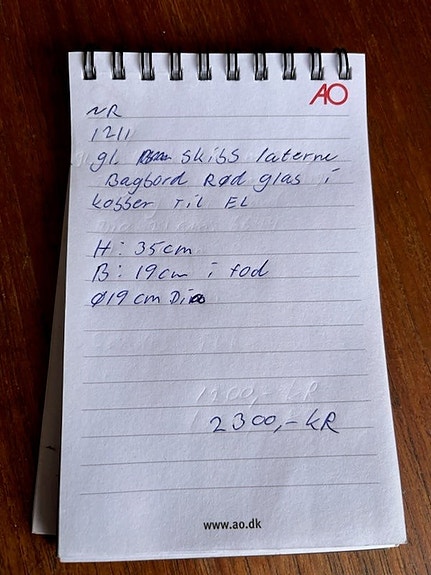 AO
NR
1211
gl. skibs laterne
Bagbord Rød glas i
kobber Til EL
H: 35cm
B: 19cm i fod
Ø19cm Dia
2300,- kR
www.ao.dk